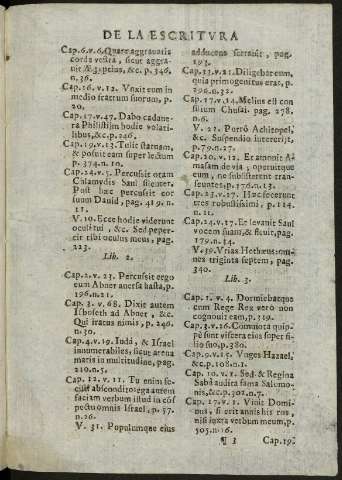 DE LA ESCRITVRA
Cap.6.v.6.Quare aggravatis
corda vestra, sicut aggra-
uit Ægyptus, &c. p.346.
n.36.
Cap.16.v.12. Vnxit eum in
medio fractum suorum, p.
20.
Cap.17.v.47. Dabo cadaue-
ra Philistijm hodie volati-
libus, &c.p.246.
Cap.19.v.13. Tulit statuam,
& posuit eam super lectum
p.374.n.10.
Cap.24.v.5. Percussit oram
Chlamydis Saul silenter.
Post hæc percussit cor
suum Dauid, pag.419.n.
11.
V.10. Ecce hodie viderunt
oculi tui, &c. Sed peper-
cit tibi oculus meus, pag.
223.
Lib. 2.
Cap.2.v. 23. Percussit ergo
eum Abner auersa hasta, p.
196.n.21.
Cap.3. v. 68. Dixit autem
Isboseth ad Abner, &c.
Qui iratus nimis, p.246.
n.30.
Cap.4.v.19. Iuda, & Israel
innumerabiles, sicut arena
maris in multitudine, pag.
219.n.5.
Cap. 12. v. 11. Tu enim fe-
cisti abscondite: ego autem
faciam verbum istud in cōs
pectu omnis Israel, p.57.
n.26.
V. 31. Populumque eius
adducens serrauit, pag.
193.
Cap.13.v.21. Diligebat eum,
quia primogenitus erat, p.
296.n.32.
Cap.17.v.14.Melius est con
silium Chusai. pag. 278.
n.6.
V. 23. Porrò Achitopel,
&c. Suspendio interrerijt,
p.79.n.27.
Cap.20.v.12. Et amouit A-
masam de via, operuitque
eum, ne subsisterent tran-
seuntes.p.176.n.13.
Cap.23.v.17. Hæc fecerunt
tres robustissimi, p.114.
n.11.
Cap.24.v.17. Et levauit Saul
vocem suam, & fleuit, pag.
179.n.34.
V.39. Vrias Hethæus: om-
nes triginta septem, pag.
340.
Lib. 3.
Cap.1. v. 4. Dormiebatque
cum Rege Rex vero non
cognouit eam, p.319.
Cap.3.v.26. Commota quip-
pè sunt viscera eius super fi-
lio suo, p.380.
Cap.9.v.15. Vnges Hazael,
&c.p.108.n.1.
Cap. 10. v. 1. Sed, & Regina
Sabà audita fama Salomo-
nis, &c.p.302.n.7.
Cap. 17.v.1. Viuit Domi-
nus, si erit annis his ros,
nisi iuxta verbum meum, p.
505.n.16.
¶ 3 Cap.19.